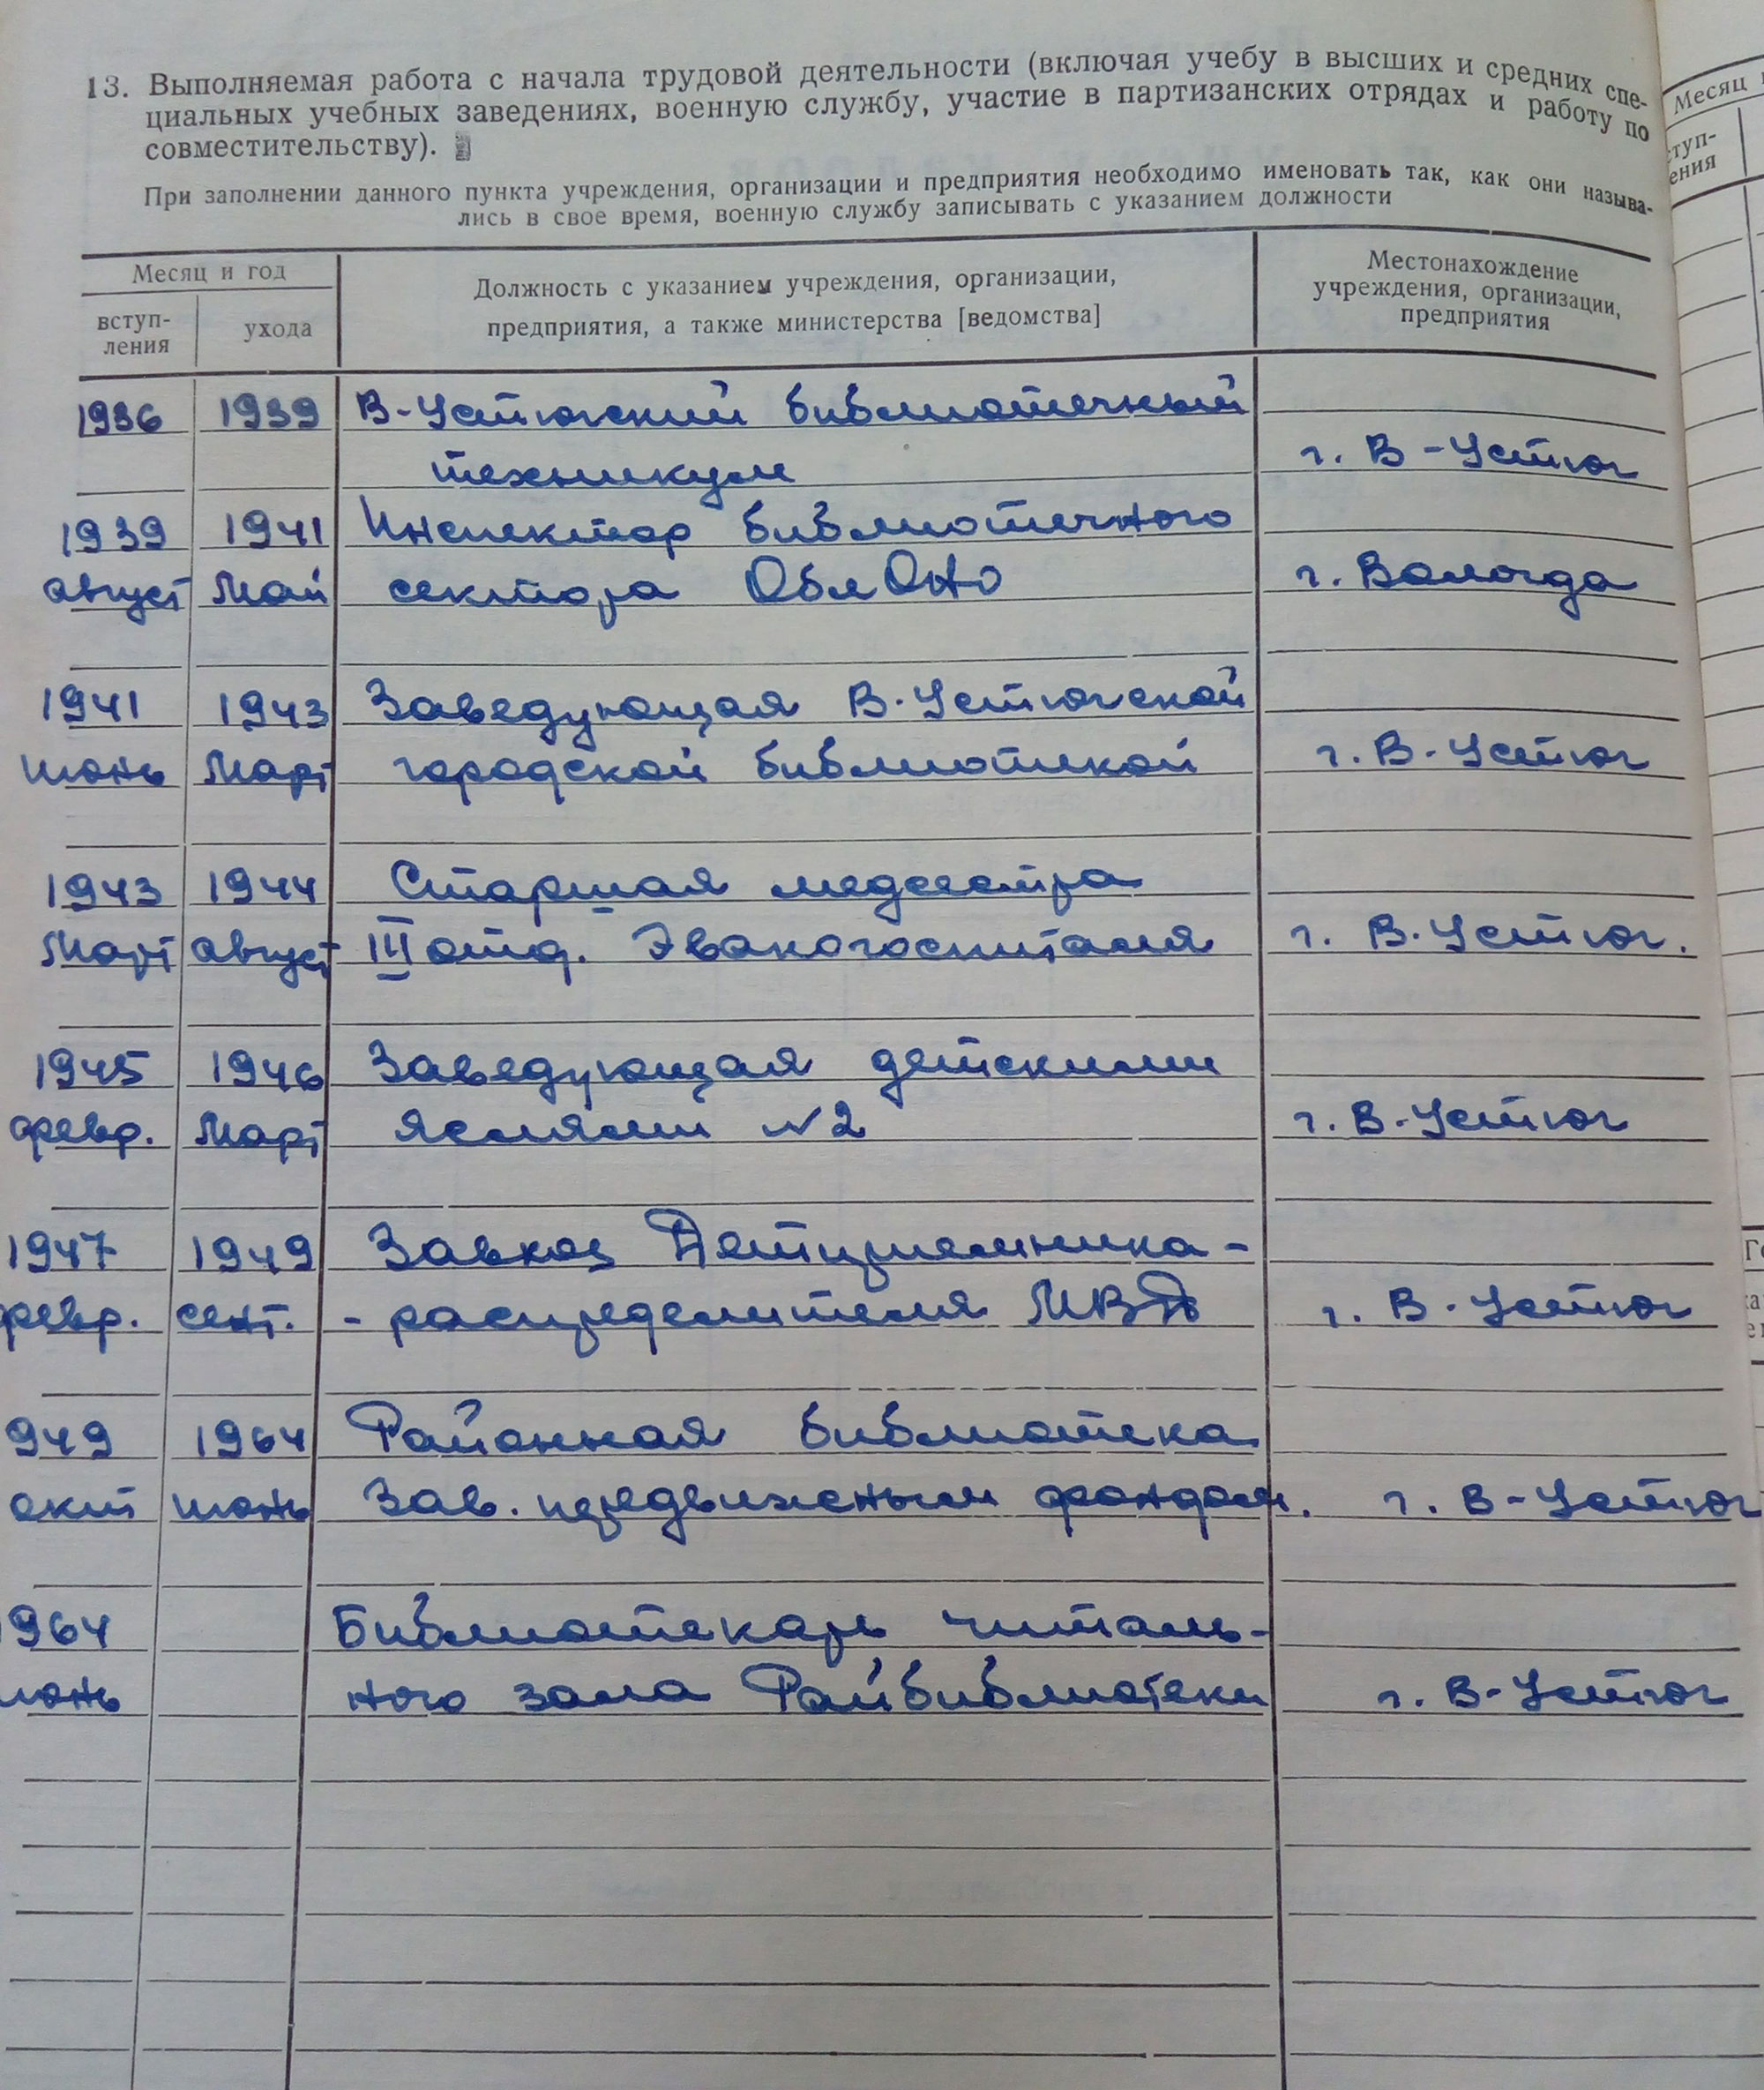 13. Выполняемая работа с начала трудовой деятельности (включая учебу в высших и средних спе-
циальных учебных заведениях, военную службу, участие в партизанских отрядах и работу по
совместительству).
При заполнении данного пункта учреждения, организации и предприятия необходимо именовать так, как они называ-
лись в свое время, военную службу записывать с указанием должности
Месяц и год
вступ-
ления
ухода
Должность с указанием учреждения, организации,
предприятия, а также министерства [ведомства]
Местонахождение
учреждения, организации,
предприятия
1936 1939 В-Устюгский библиотечный
техникум г. В-Устюг
1939 1941 Инспектор библиотечного
август Май сектора ОблОНО г. Вологда
1941 1943 Заведующая В.Устюгской
июнь Март городской библиотекой г. В.Устюг
1943 1944 Старшая медсестра
Март август III отд. Эвакогоспиталя г. В.Устюг.
1945 1946 Заведующая детскими
февр. Март яслями №2 г. В.Устюг
1947 1949 Завхоз Детприемника-
февр. сент. -распределителя МВД г. В.Устюг
949 1964 Районная библиотека
окт июнь Зав. передвижным фондом. г. В-Устюг
964 Библиотекарь читаль-
июнь ного зала Райбиблиотеки г. В-Устюг
Месяц
ступ-
ения